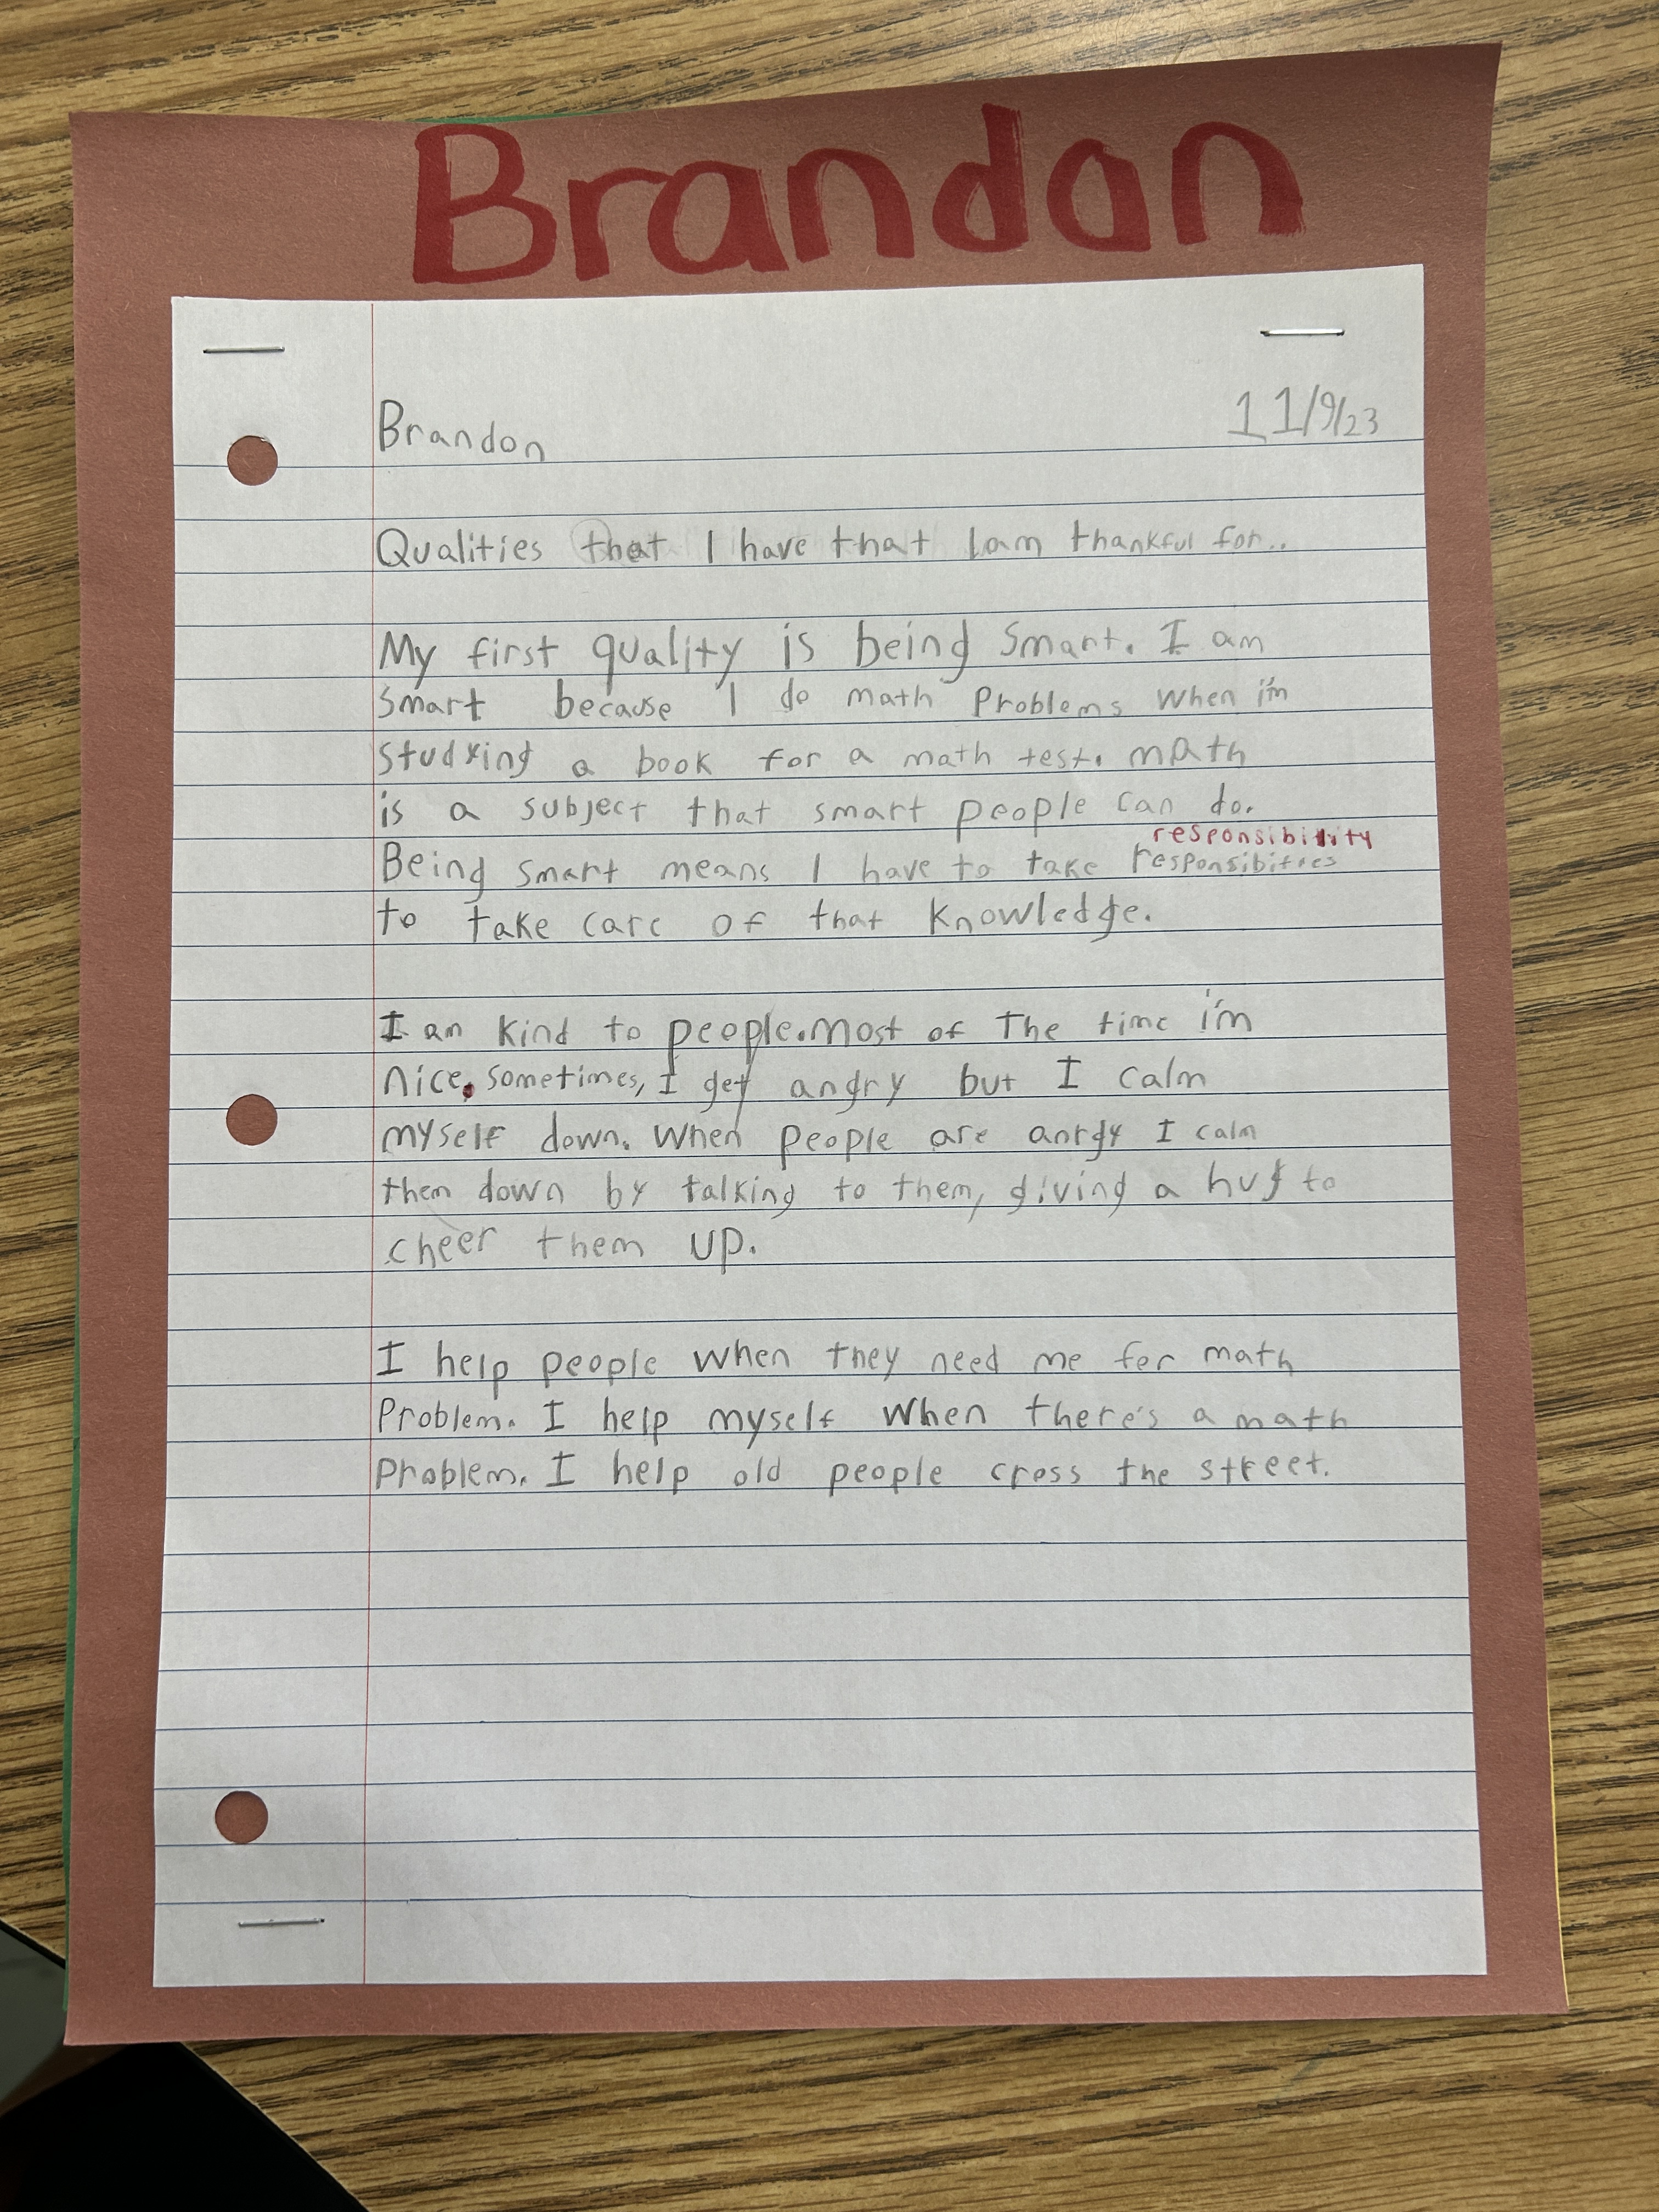 Brandon
Brandon 11/9/23
Qualities that I have that I am thankful for..
My first quality is being smart. I am
smart because I do math problems when i'm
studying a book for a math test. math
is a subject that smart people can do.
responsibility
Being smart means I have to take responsibities
to take care of that knowledge.
I am kind to people. Most of the time i'm
nice. sometimes, I get angry but I calm
myself down. When people are anrgy I calm
them down by talking to them, giving a hug to
cheer them up.
I help people when they need me for math
Problem. I help myself when there's a math
Problem. I help old people cross the street.